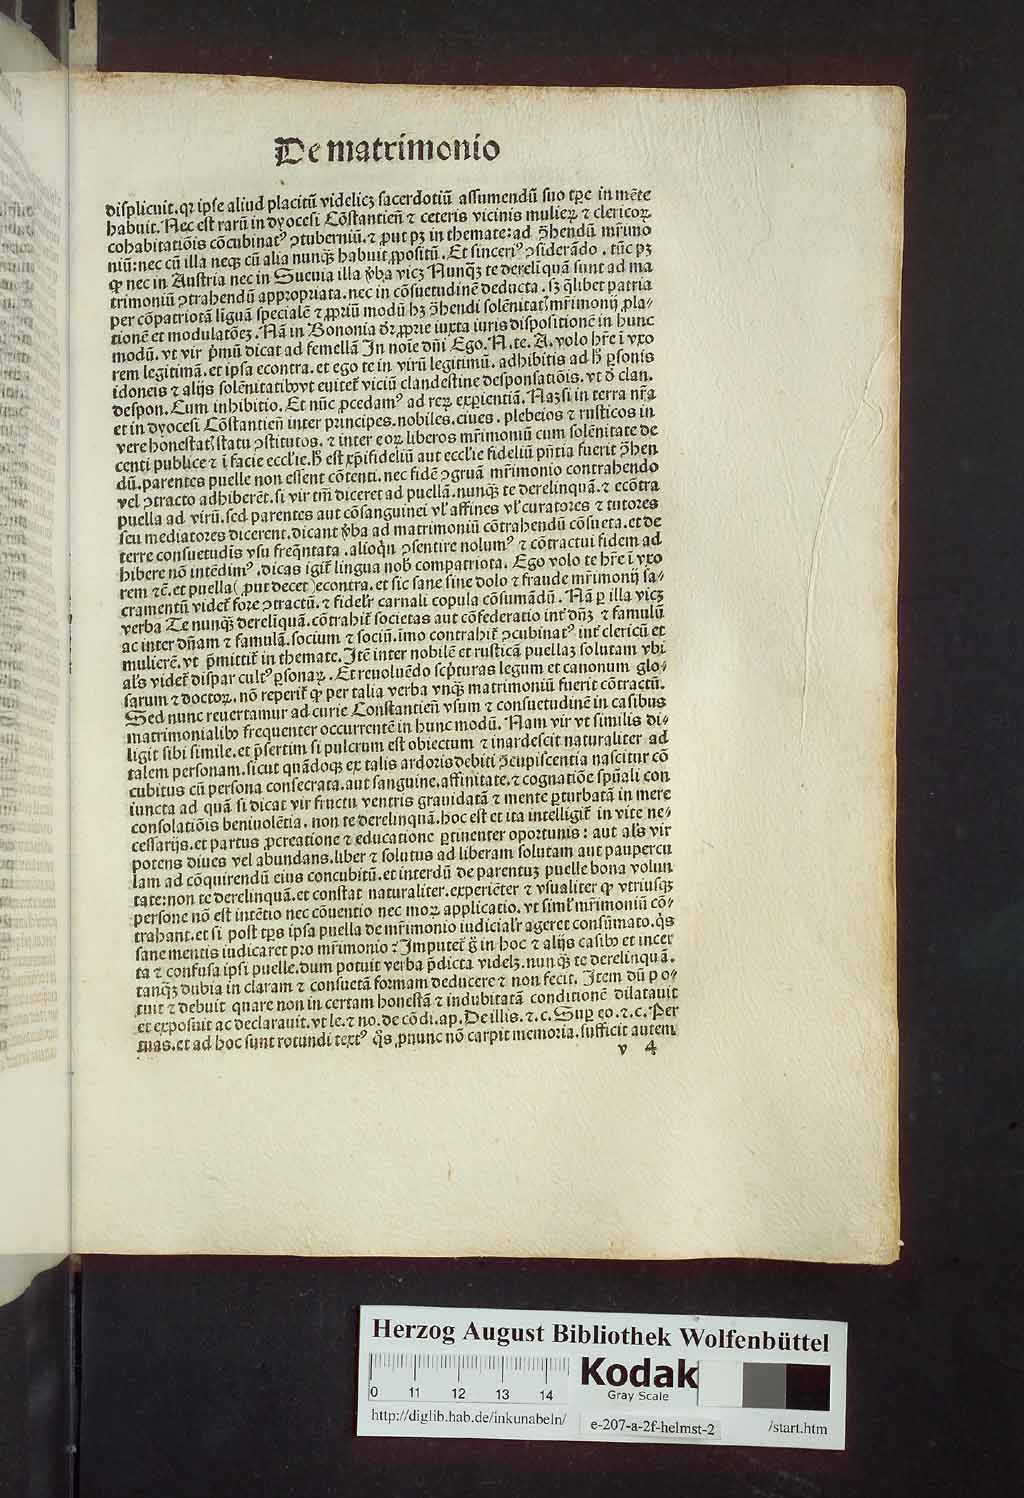 De matrimonio
displicuit. qꝛ ipse aliud placitū videlicꝫ sacerdotiū assumendū suo tꝑe in mēte
habuit. Nec est rarū in dyocesi Cōstantieñ ⁊ ceteris vicinis mulieꝝ ⁊ clericoꝝ
cohabitatiōis cōcubinatꝰ ꝯtuberniū. ⁊ ꝓut pꝫ in themate: ad ꝯ̄hendū mr̄imo
niū: nec cū illa neqꝫ cū alia nunqꝫ̄ habuit ꝓpositū. Et sincerꝰ ꝯsiderādo. tūc pꝫ
ꝙ nec in Austria nec in Sueuia illa v̄ba vicꝫ Nunqꝫ̄ te derelīquā sunt ad ma
trimoniū ꝯtrahendū appropriata. nec in cōsuetudinē deducta. sꝫ q̄libet patria
per cōpatriotā liguā specialē ⁊ ꝓpriū modū hꝫ ꝯ̄hendi solēnitatꝭ mr̄imonij ꝓla-
tionē et modulatōeꝫ. Nā in Bononia dr̄ ꝓprie iuxta iuris dispositionē in hunc
modū. vt vir p̄mū dicat ad femellā In noīe dn̄i Ego. N. te. A. volo hr̄e ī vxo
rem legitimā. et ipsa econtra. et ego te in virū legitimū. adhibitis ad h̄ ꝑsonis
idoneis ⁊ alijs solēnitatibꝰ vt euitet᷑ viciū clandestine desponsatiōis. vt d̄ clan.
despon. Cum inhibitio. Et nūc ꝓcedamꝰ ad reꝝ exꝑientiā. Naꝫ si in terra nr̄a
et in dyocesi Cōstantieñ inter principes. nobiles. ciues. plebeios ⁊ rusticos in
vere honestatꝭ statu ꝯstitutos. ⁊ inter eoꝝ liberos mr̄imoniū cum solēnitate de
centi publice ⁊ ī facie eccl̄ie. h̄ est xp̄ifideliū aut eccl̄ie fideliū pn̄tia fuerit ꝯ̄hen
dū. parentes puelle non essent cōtenti. nec fidē ꝯgruā mr̄imonio contrahendo
vel ꝯtracto adhiberēt. si vir tm̄ diceret ad puellā. nunqꝫ̄ te derelinquā. ⁊ ecōtra
puella ad virū. sed parentes aut cōsanguinei vl̓ affines vl̓ curatores ⁊ tutores
seu mediatores dicerent. dicant v̄ba ad matrimoniū cōtrahendū cōsueta. et de
terre consuetudīs vsu freq̄ntata. alioq̄n ꝯsentire nolumꝰ ⁊ cōtractui fidem ad
hibere nō intēdimꝰ. dicas igit᷑ lingua nob̓ compatriota. Ego volo te hr̄e ī vxo
rem ⁊c̄. et puella (ꝓut decet) econtra. et sic sane sine dolo ⁊ fraude mr̄imonij sa-
cramentū videt᷑ fore ꝯtractū. ⁊ fidel̓r carnali copula cōsumādū. Nā ꝑ illa vicꝫ
verba Te nunqꝫ̄ derelīquā. cōtrahit᷑ societas aut cōfederatio int̓ dn̄ꝫ ⁊ famulū
ac inter dn̄am ⁊ famulā. socium ⁊ sociū. imo contrahit᷑ ꝯcubinatꝰ int̓ clericū et
mulierē. vt p̄mittit᷑ in themate. Itē inter nobilē et rusticā puellaꝫ solutam vbi
al̓s videt᷑ dispar cultꝰ ꝑsonaꝝ. Et reuoluēdo sc̓pturas legum et canonum glo-
sarum ⁊ doctoꝝ. nō reperit᷑ ꝙ per talia verba vnqꝫ̄ matrimoniū fuerit cōtractū.
Sed nunc reuertamur ad curie Constantieñ vsum ⁊ consuetudinē in casibus
matrimonialibꝰ frequenter occurrentē in hunc modū. Nam vir vt similis di-
ligit sibi simile. et p̄sertim si pulcrum est obiectum ⁊ inardescit naturaliter ad
talem personam. sicut quādoqꝫ ex talis ardoris debiti ꝯcupiscentia nascitur cō
cubitus cū persona consecrata. aut sanguine. affinitate. ⁊ cognatiōe spūali con
iuncta ad quā si dicat vir fructu ventris grauidatā ⁊ mente ꝑturbatā in mere
consolatiōis beniuolētia. non te derelinquā. hoc est et ita intelligit᷑ in vite ne-
cessarijs. et partus ꝓcreatione ⁊ educatione ꝑtinenter oportunis: aut al̓s vir
potens diues vel abundans. liber ⁊ solutus ad liberam solutam aut paupercu
lam ad cōquirendū eius concubitū. et interdū de parentuꝫ puelle bona volun
tate: non te derelinquā. et constat naturaliter. experiēter ⁊ vsualiter ꝙ vtriusqꝫ
persone nō est intētio nec cōuentio nec moꝝ applicatio. vt siml̓ mr̄imoniū cō-
trahant. et si post tꝑs ipsa puella de mr̄imonio iudicial̓r ageret consūmato. q̄s
sane mentis iudicaret pro mr̄imonio? Imputet᷑ g̊ in hoc ⁊ alijs casibꝰ et incer
ta ⁊ confusa ipsi puelle. dum potuit verba p̄dicta videlꝫ. nunqꝫ̄ te derelinquā.
tanqꝫ̄ dubia in claram ⁊ consuetā formam deducere ⁊ non fecit. Item dū po-
tuit ⁊ debuit quare non in certam honestā ⁊ indubitatā conditionē dilatauit
et exposuit ac declarauit. vt le. ⁊ no. de cō di. ap. De illis. ⁊. c. Suꝑ eo. ⁊. c. Per
tuas. et ad hoc sunt rotundi textꝰ q̄s ꝓnunc nō carpit memoria. sufficit autem
v 4
Herzog August Bibliothek Wolfenbüttel
Kodak
Gray Scale
0 11 12 13 14
http://diglib.hab.de/inkunabeln/ e-207-a-2f-helmst-2 /start.htm